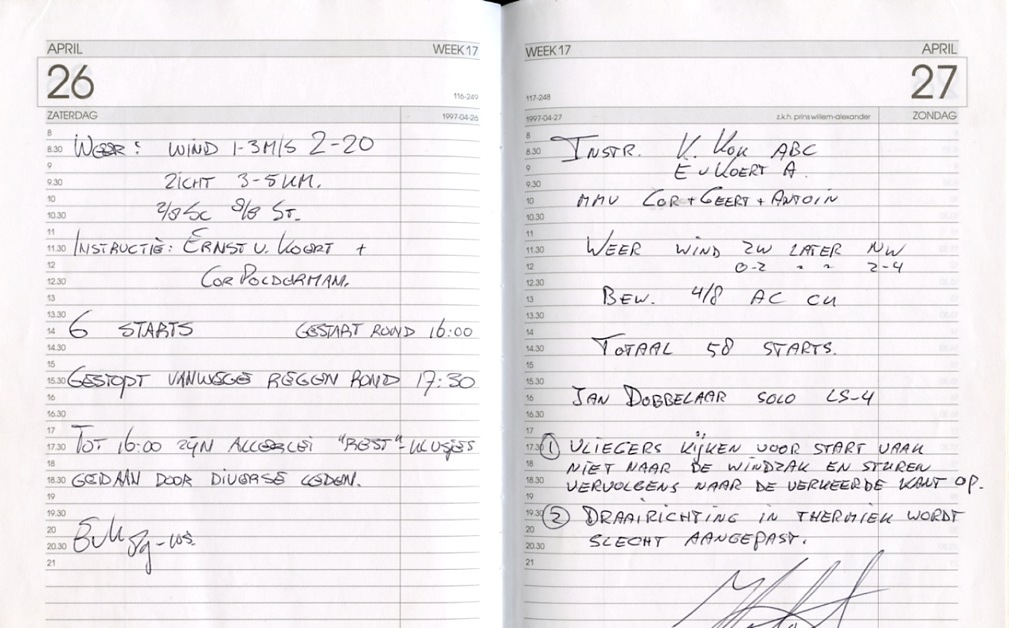 APRIL WEEK 17
26
116-249
ZATERDAG 1997-04-26
8
8.30 WEER: WIND 1-3 M/S 2-20
9
9.30 ZICHT 3-5 KM.
10
10.30 2/8 SC 8/8 ST.
11
11.30 INSTRUCTIE: ERNST V. KOERT +
12
12.30 COR POLDERMAN.
13
13.30
14 6 STARTS GESTART ROND 16:00
14.30
15
15.30 GESTOPT VANWEGE REGEN ROND 17:30
16
16.30
17
17.30 TOT 16:00 ZIJN ALLERLEI "REST"-KLUSJES
18
18.30 GEDAAN DOOR DIVERSE LEDEN.
19
19.30
20
20.30
21
WEEK 17 APRIL
27
117-248
1997-04-27 z.k.h. prins willem-alexander ZONDAG
8
8.30 INSTR. K. KOK ABC
9 E V KOERT A.
9.30
10 MMV COR + GEERT + ANTOIN
10.30
11
11.30 WEER WIND ZW LATER NW
12 0-2 " " 2-4
12.30
13 BEW. 4/8 AC CU
13.30
14
14.30 TOTAAL 58 STARTS.
15
15.30
16 JAN DOBBELAAR SOLO LS-4
16.30
17
17.30 1 VLIEGERS KIJKEN VOOR START VAAK
18 NIET NAAR DE WINDZAK EN STUREN
18.30 VERVOLGENS NAAR DE VERKEERDE KANT OP.
19
19.30 2 DRAAIRICHTING IN THERMIEK WORDT
20
20.30 SLECHT AANGEPAST.
21